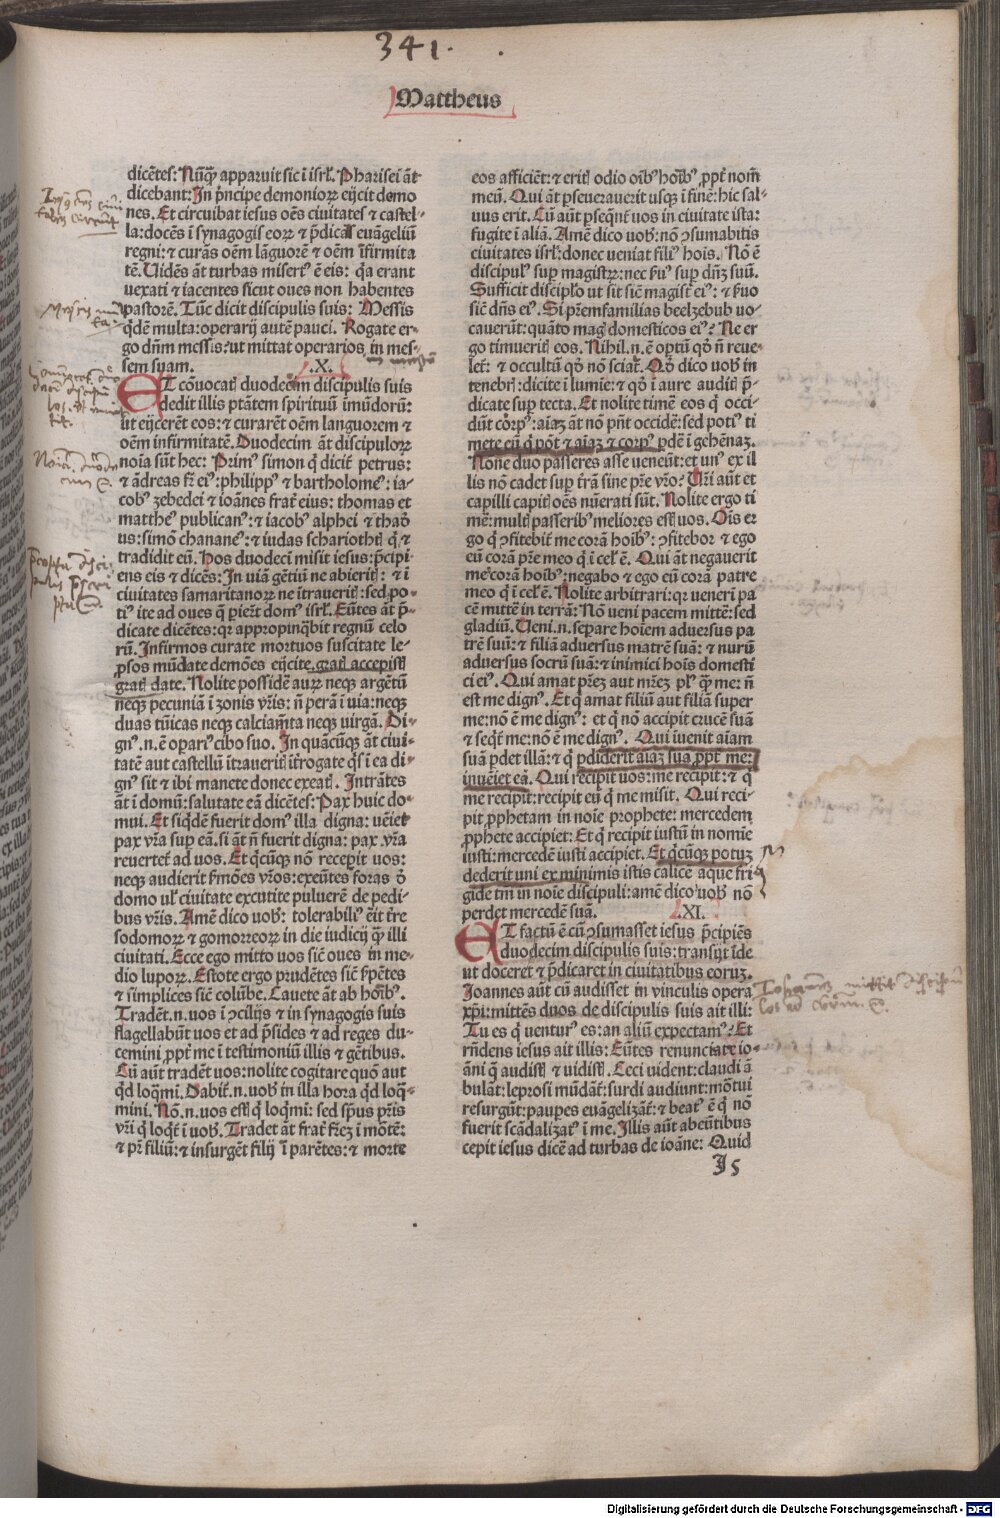 341.
Mattheus
dicētes: Nūq̃ apparuit sic ī isrł. Pharisei āt
dicebant: In p̄ncipe demonioꝝ eijcit demo
nes. Et circuibat iesus oēs ciuitates ⁊ castel⸗
la: docēs ī synagogis eoꝝ ⁊ p̄dicās euāgeliū
regni: ⁊ curās oēm lāguorē ⁊ oēm īfirmita
tē. Uidēs āt turbas misertꝰ ē eis: q̄a erant
vexati ⁊ iacentes sicut oues non habentes
pastorē. Tūc dicit discipulis suis: Messis
q̇dē multa: operarij autē pauci. Rogate er⸗
go dn̄m messis: ut mittat operarios in mes⸗
sem suam. .X.
ET cōuocatꝭ duodecim discipulis suis
dedit illis ptātem spirituū īmūdorū:
ut eijcerēt eos: ⁊ curarēt oēm languorem ⁊
oēm infirmitatē. Duodecim āt discipuloꝝ
noīa sūt hec: Primꝰ simon q̇ dicit̄ petrus:
⁊ ādreas fr̄ eiꝰ: philippꝰ ⁊ bartholomeꝰ: ia⸗
cobꝰ zebedei ⁊ ioānes frat̄ eius: thomas et
mattheꝰ publicanꝰ: ⁊ iacobꝰ alphei ⁊ thad̄
us: simō chananeꝰ: ⁊ iudas schariothꝭ q̇ ⁊
tradidit eū. Hos duodecī misit iesus: p̄cipi
ens eis ⁊ dicēs: In uiā gētiū ne abieritꝭ: ⁊ ī
ciuitates samaritanoꝝ ne ītraueritꝭ: sed po⸗
tiꝰ ite ad oues q̄ perier̄t domꝰ isrł. Eūtes āt p̄⸗
dicate dicētes: qr appropinq̇bit regnū celo
rū. Infirmos curate mortuos suscitate le⸗
p̱sos mūdate demōes eijcite. gratꝭ accepistꝭ
gratꝭ date. Nolite possidē auꝝ neq̧ argētū
neq̧ pecuniā ī zonis vr̄is: ñ perā ī uia: neq̧
duas tūicas neq̧ calciam̄ta neq̧ uirgā. Di⸗
gnꝰ .n. ē opariꝰ cibo suo. In quācūq̧ āt ciui⸗
tatē aut castellū ītraueritꝭ: īt̄rogate q̇s ī ea di⸗
gnꝰ sit ⁊ ibi manete donec exeatꝭ. Intrātes
āt ī domū: salutate eā dicētes: Pax huic do⸗
mui. Et siq̇dē fuerit domꝰ illa digna: ueīet
pax vr̄a sup eā. si āt ñ fuerit digna: pax vr̄a
reuertet̄ ad uos. Et q̇cūq̧ nō recepit uos:
neq̧ audierit s̄mōes vr̄os: exeūtes foras ð
domo ul̄ ciuitate excutite puluerē de pedi⸗
bus vr̄is. Amē dico uob̄: tolerabiliꝰ ēit t̄re
sodomoꝝ ⁊ gomorreoꝝ in die iudicij q̄ illi
ciuitati. Ecce ego mitto uos sic̄ oues in me⸗
dio lupoꝝ. Estote ergo prudētes sic̄ s̄pētes
⁊ s̄implices sic̄ colūbe. Cauete āt ab hoīb̄.
Tradēt .n. uos ī ɔcilijs ⁊ in synagogis suis
flagellabūt uos et ad p̄sides ⁊ ad reges du⸗
cemini p̱pt̄ me ī testimoniū illis ⁊ gētibus.
Cū aūt tradēt uos: nolite cogitare quō aut
q̇d loq̄mi. Dabit̄ .n. uob̄ in illa hora q̇d loq̄⸗
mini. Nō .n. uos estꝭ q̇ loq̄mi: sed sp̄us pr̄is
vr̄i q̇ loq̇t̄ ī uob̄. Tradet āt frat̄ fr̄ez ī mōtē:
⁊ pr̄ filiū: ⁊ insurgēt filij ī parētes: ⁊ morte
eos afficiēt: ⁊ eritꝭ odio oīb̄ hoīb̄ p̱pt̄ nom̄
meū. Qui āt pseuerauerit usq̧ ī finē: hic sal⸗
uus erit. Cū aūt pseq̄nt̄ uos in ciuitate ista:
fugite ī aliā. Amē dico uob̄: nō ɔsumabitis
ciuitates isrł: donec ueniat filiꝰ hoīs. Nō ē
discipulꝰ sup magistꝝ: nec s̄uꝰ sup dn̄z suū.
Sufficit discipło ut sit sic̄ magist̄ eiꝰ: ⁊ s̄uo
sic̄ dn̄s eiꝰ. Si pr̄emfamilias beelzebub uo⸗
cauerūt: quāto magꝭ domesticos eiꝰ? Ne er
go timueritꝭ eos. Nihil .n. ē optū qð ñ reue⸗
let̄: ⁊ occultū qð nō sciat̄. Qð dico uob̄ in
tenebrꝭ: dicite ī lumīe: ⁊ qð ī aure auditꝭ p̄⸗
dicate sup tecta. Et nolite timē eos q̇ occi⸗
dūt corpꝰ: aīaz āt nō pn̄t occidē: sed potiꝰ ti
mete eū q̇ pōt ⁊ aīaz ⁊ corpꝰ pdē ī gehēnaz.
Nōne duo passeres asse ueneūt: et unꝰ ex il
lis nō cadet sup t̄rā sine pr̄e vr̄o? Vr̄i aūt et
capilli capitꝭ oēs nūerati sūt. Nolite ergo ti
mē: multꝭ passerib̄ meliores estꝭ uos. Oīs er
go q̇ ɔfitebit̄ me corā hoīb̄: ɔfitebor ⁊ ego
eū corā pr̄e meo q̇ ī cełꝭ ē. Qui āt negauerit
me corā hoīb̄: negabo ⁊ ego eū corā patre
meo q̇ ī cełꝭ ē. Nolite arbitrari: qr uenerī pa
cē mittē in terrā: Nō ueni pacem mittē: sed
gladiū. Ueni .n. separe hoīem aduersus pa
trē suū: ⁊ filiā aduersus matrē suā: ⁊ nurū
aduersus socrū suā: ⁊ inimici hoīs domesti
ci eiꝰ. Qui amat pr̄ez aut mr̄ez plꝰ q̄ me: ñ
est me dignꝰ. Et q̇ amat filiū aut filiā super
me: nō ē me dignꝰ: et q̇ nō accipit crucē suā
⁊ seq̇t̄ me: nō ē me dignꝰ. Qui īuenit aīam
suā pdet illā: ⁊ q̇ pdiderit aīaz suā p̱pt̄ me:
inueīet eā. Qui recipit uos: me recipit: ⁊ q̇
me recipit: recipit eū q̇ me misit. Qui reci⸗
pit p̱phetam in noīe prophete: mercedem
p̱phete accipiet: Et q̇ recipit iustū in nomīe
iusti: mercedē iusti accipiet. Et q̇cūq̧ potuz
dederit uni ex minimis istis calicē aque fri
gide tm̄ in noīe discipuli: amē dico uob̄ nō
perdet mercedē suā. .XI.
ET factū ē cū ɔsumasset iesus p̄cipiēs
duodecim discipulis suis: transijt īde
ut doceret ⁊ p̄dicaret in ciuitatibus eoruz.
Joannes aūt cū audisset in vinculis opera
xp̄i: mittēs duos de discipulis suis ait illi:
Tu es q̇ uenturꝰ es: an aliū expectamꝰ? Et
rn̄dens iesus ait illis: Eūtes renunciate io⸗
āni q̄ audistꝭ ⁊ uidistꝭ. Ceci uident: claudi ā
bulāt: leprosi mūdāt̄: surdi audiunt: mōtui
resurgūt: paupes euāgelizāt̄: ⁊ beatꝰ ē q̇ nō
fuerit scādalizatꝰ ī me. Illis aūt abeūtibus
cepit iesus dicē ad turbas de ioāne: Quid
I 5
Digitalisierung gefördert durch die Deutsche Forschungsgemeinschaft - DFG